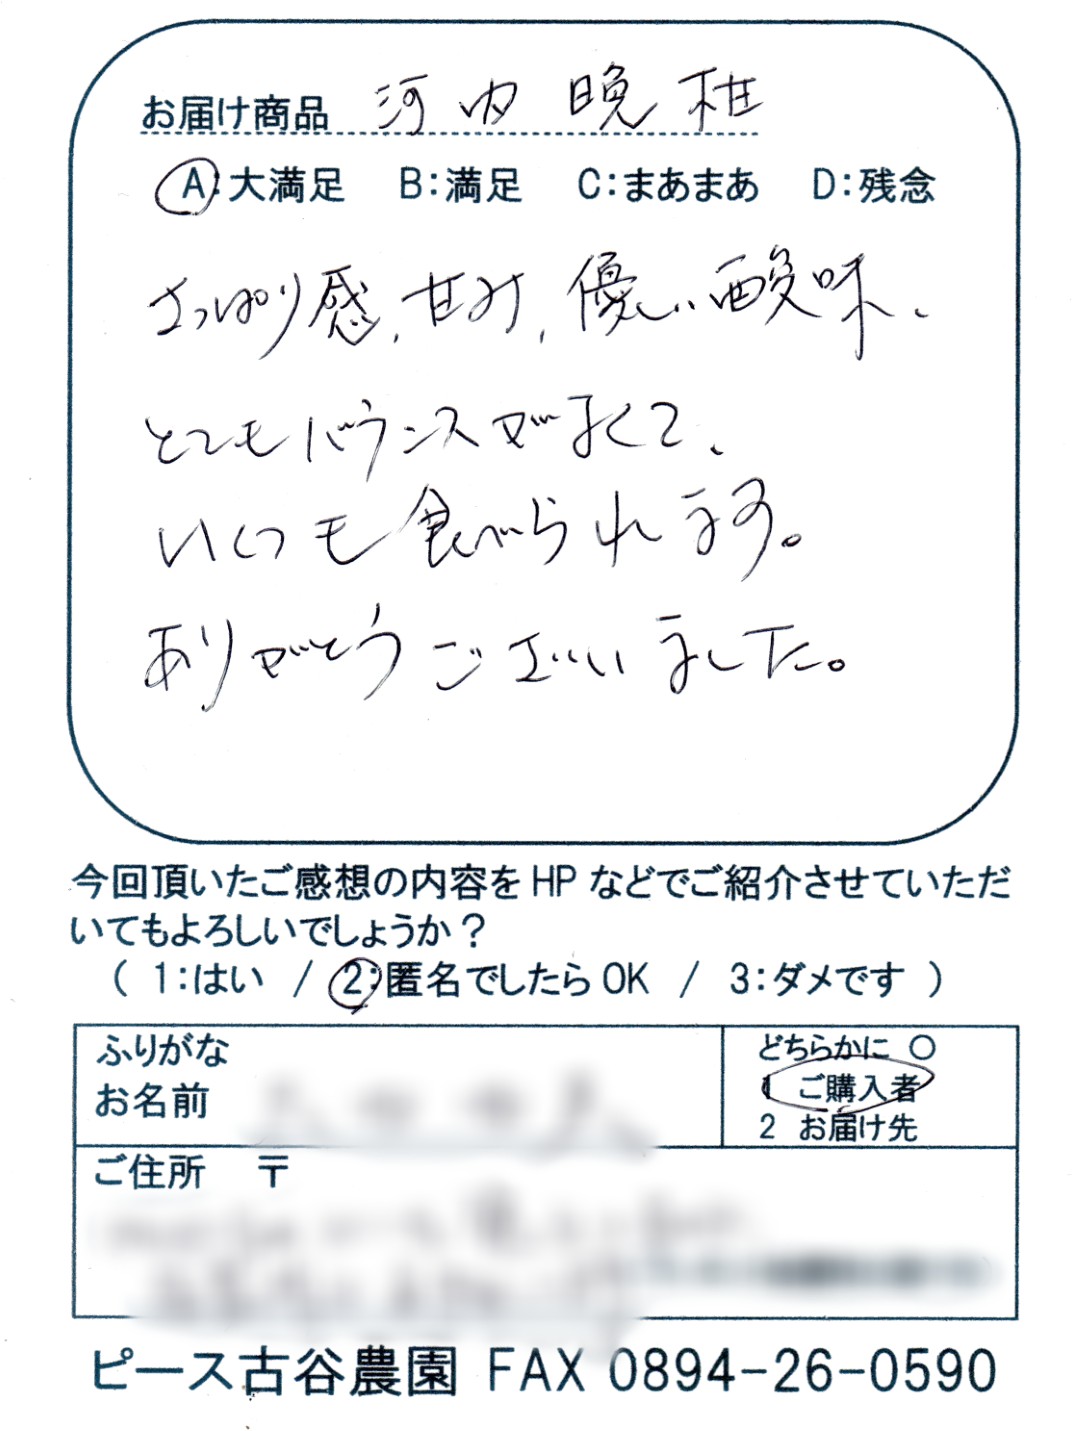 お届け商品 河内晩柑
A:大満足 B:満足 C:まあまあ D:残念
さっぱり感、甘み、優しい酸味、
とてもバランスがよくて、
いくつも食べられます。
ありがとうございました。
今回頂いたご感想の内容をHPなどでご紹介させていただ
いてもよろしいでしょうか？
( 1:はい / 2:匿名でしたらOK / 3:ダメです )
ふりがな
お名前
どちらかに ○
1 ご購入者
2 お届け先
ご住所 〒
ピース古谷農園 FAX 0894-26-0590